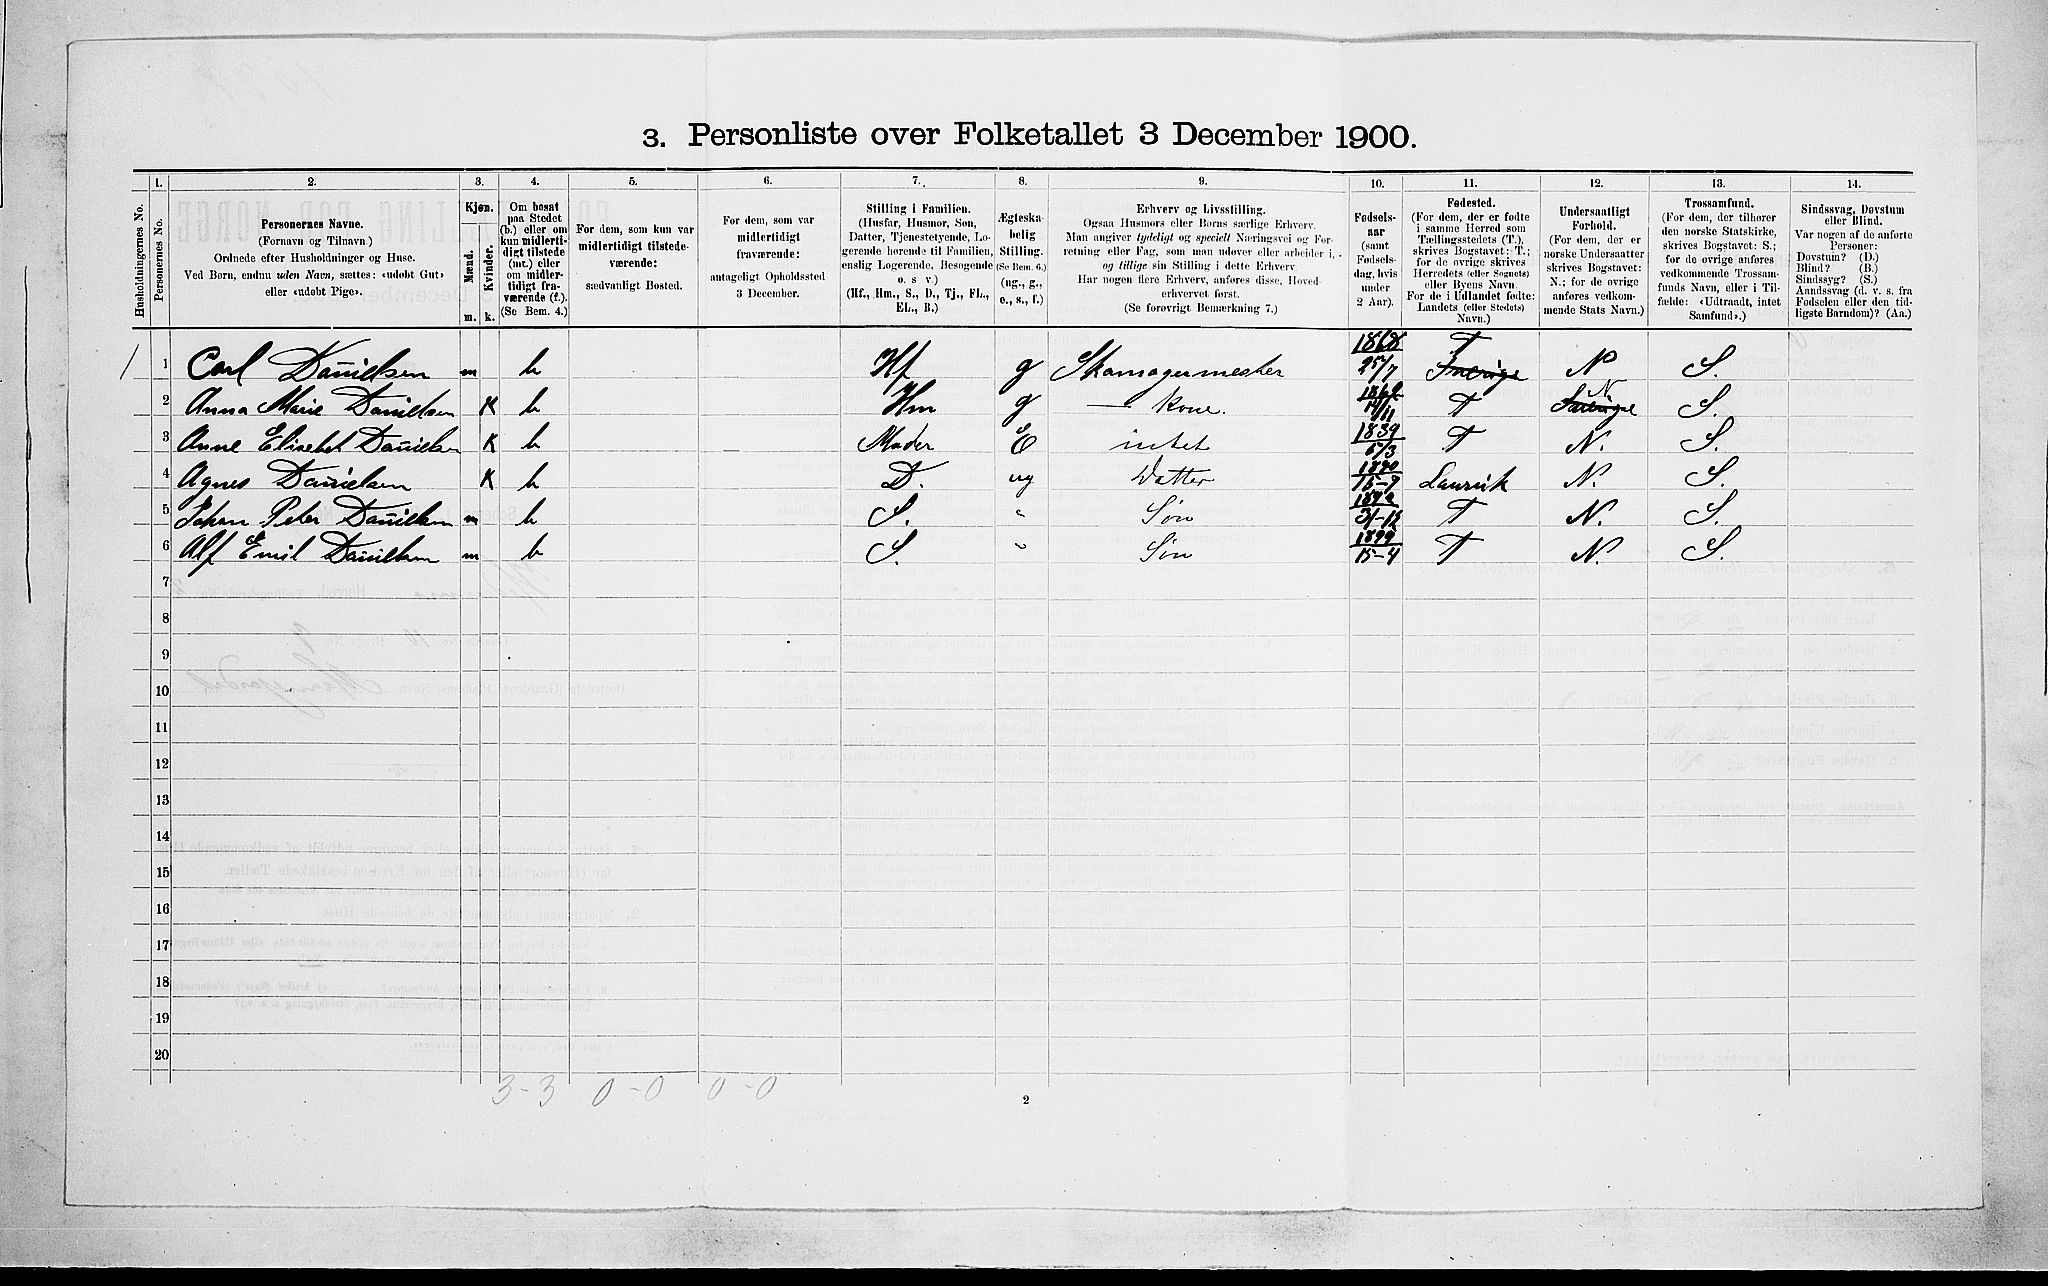 3. Personliste over Folketallet 3 December 1900.
1. 2. 3. 4. 5. 6. 7. 8. 9. 10. 11. 12. 13. 14.
Husholdningernes No.
Personernes No.
Personernes Navne.
(Fornavn og Tilnavn.)
Ordnede efter Husholdninger og Huse.
Ved Børn, endnu uden Navn, sættes: «udøbt Gut»
eller «udøbt Pige».
Kjøn.
Mænd.
Kvinder.
m. k.
Om bosat
paa Stedet
(b.) eller om
kun midlerti-
digt tilstede
(mt.) eller
om midler-
tidigt fra-
værende (f.).
(Se Bem. 4.)
For dem, som kun var
midlertidigt tilstede-
værende:
sædvanligt Bosted.
For dem, som var
midlertidigt
fraværende:
antageligt Opholdssted
3 December.
Stilling i Familien.
(Husfar, Husmor, Søn,
Datter, Tjenestetyende, Lo-
gerende hørende til Familien,
enslig Logerende, Besøgende
o. s v.)
(Hf., Hm., S., D., Tj., FL.,
EL., B.)
Ægteska-
belig
Stilling.
(Se Bem. 6.)
(ug., g.,
e., s., f.)
Erhverv og Livsstilling.
Ogsaa Husmors eller Børns særlige Erhverv.
Man angiver tydeligt og specielt Næringsvei og For-
retning eller Fag, som man udøver eller arbeider i,
og tillige sin Stilling i dette Erhverv.
Har nogen flere Erhverv, anføres disse, Hoved-
erhvervet først.
(Se forøvrigt Bemærkning 7.)
Fødsels-
aar
(samt
Fødsels-
dag, hvis
under
2 Aar).
Fødested.
(For dem, der er fødte
i samme Herred som
Tællingsstedets (T.),
skrives Bogstavet: T.;
for de øvrige skrives
Herredets (eller Sognets)
eller Byens Navn.
For de i Udlandet fødte:
Landets (eller Stedets)
Navn.)
Undersaatligt
Forhold.
(For dem, der er
norske Undersaatter
skrives Bogstavet:
N.; for de øvrige
anføres vedkom-
mende Stats Navn.)
Trossamfund.
(For dem, der tilhører
den norske Statskirke,
skrives Bogstavet: S.;
for de øvrige anføres
vedkommende Trossam-
funds Navn, eller i Til-
fælde: «Udtraadt, intet
Samfund».)
Sindssvag, Døvstum
eller Blind.
Var nogen af de anførte
Personer:
Døvstum? (D.)
Blind? (B.)
Sindssyg? (S.)
Aandssvag (d. v. s. fra
Fødselen eller den tid-
ligste Barndom)? (Aa.)
1 1 Carl Danielsen m b Hf g Skomagermester 1868 25/7 T Sverige N S.
2 Anna Marie Danielsen K b Hm g — Kone. 14/11 T N Sverige S.
3 Anne Elisebet Danielsen K b Moder E intet 1839 5/3 T N. S.
4 Agnes Danielsen K b D. ug Datter 1890 15-9 Laurvik N. S.
5 Johan Peter Danielsen m b S. " Søn 31-12 T N. S.
6 Alf Emil Danielsen m b S. " Søn 1899 15-4 T N. S.
7
8
9
10
11
12
13
14
15
16
17
18
19
20
3-3 0-0 0-0
2